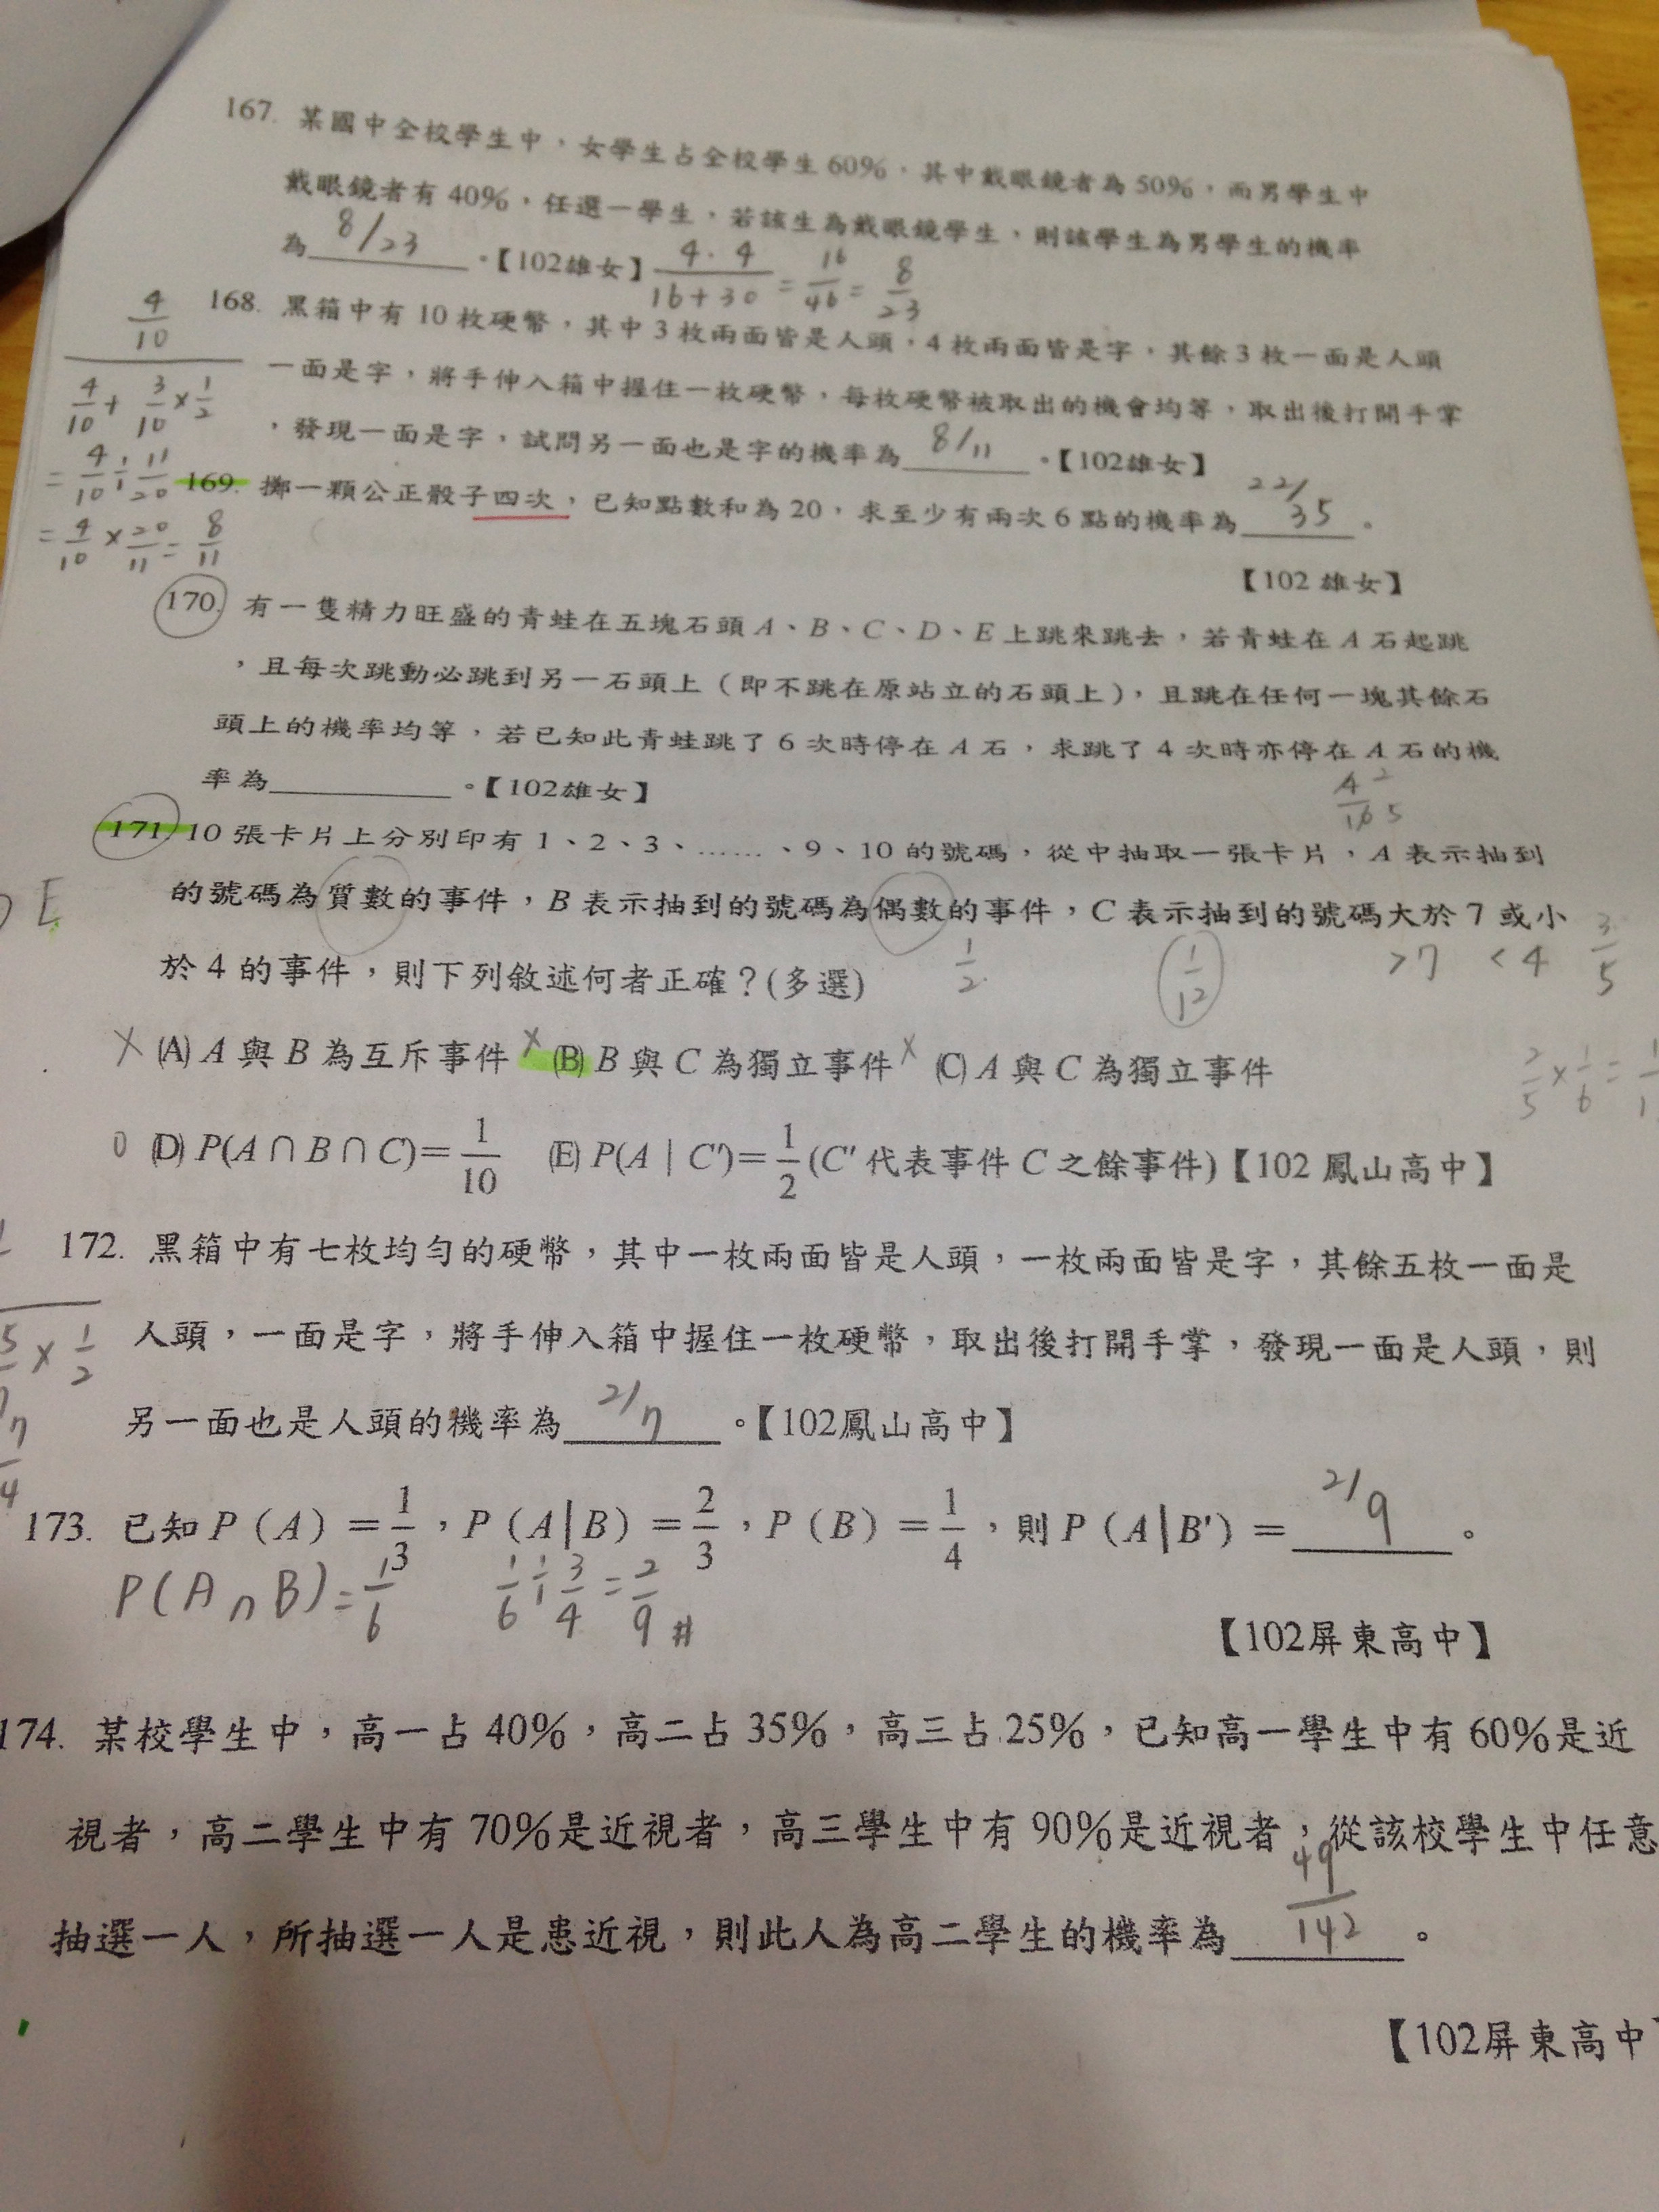 167. 某國中全校學生中，女學生占全校學生60%，其中戴眼鏡者為50%，而男學生中
戴眼鏡者有40%，任選一學生，若該生為戴眼鏡學生，則該學生為男學生的機率
為 8/23 。【102雄女】 4·4/16+30 = 16/46 = 8/23
4/10
168. 黑箱中有10枚硬幣，其中3枚兩面皆是人頭，4枚兩面皆是字，其餘3枚一面是人頭
4/10 + 3/10 × 1/2
一面是字，將手伸入箱中握住一枚硬幣，每枚硬幣被取出的機會均等，取出後打開手掌
，發現一面是字，試問另一面也是字的機率為 8/11 。【102雄女】
= 4/10 ÷ 11/20
169. 擲一顆公正骰子四次，已知點數和為20，求至少有兩次6點的機率為 22/35 。
= 4/10 × 20/11 = 8/11
【102 雄女】
170. 有一隻精力旺盛的青蛙在五塊石頭A、B、C、D、E上跳來跳去，若青蛙在A石起跳
，且每次跳動必跳到另一石頭上（即不跳在原站立的石頭上），且跳在任何一塊其餘石
頭上的機率均等，若已知此青蛙跳了6次時停在A石，求跳了4次時亦停在A石的機
率為 。【102雄女】
4 2/10 5
171. 10張卡片上分別印有1、2、3、……、9、10的號碼，從中抽取一張卡片，A表示抽到
的號碼為質數的事件，B表示抽到的號碼為偶數的事件，C表示抽到的號碼大於7或小
E
於4的事件，則下列敘述何者正確？(多選)
1/2 1/12 >7 <4 3/5
× (A) A與B為互斥事件 × (B) B與C為獨立事件 × (C) A與C為獨立事件
2/5 × 1/6 =
0 (D) P(A∩B∩C)=1/10 (E) P(A|C')=1/2(C'代表事件C之餘事件)【102鳳山高中】
172. 黑箱中有七枚均勻的硬幣，其中一枚兩面皆是人頭，一枚兩面皆是字，其餘五枚一面是
人頭，一面是字，將手伸入箱中握住一枚硬幣，取出後打開手掌，發現一面是人頭，則
× 1/2
另一面也是人頭的機率為 2/7 。【102鳳山高中】
173. 已知P（A）=1/3，P（A|B）=2/3，P（B）=1/4，則P（A|B'）= 2/9 。
P(A∩B)=1/6 1/6 ÷ 3/4 = 2/9 #
【102屏東高中】
174. 某校學生中，高一占40%，高二占35%，高三占25%，已知高一學生中有60%是近
視者，高二學生中有70%是近視者，高三學生中有90%是近視者，從該校學生中任意
抽選一人，所抽選一人是患近視，則此人為高二學生的機率為 49/142 。
【102屏東高中